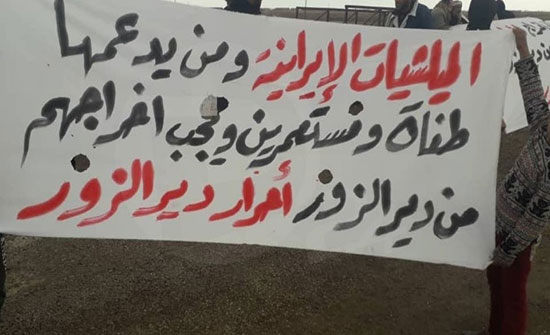 الميلشيات الإيرانية ومن يدعمها
طغاة ومستعمرين ويجب اخراجهم
من دير الزور أحرار دير الزور